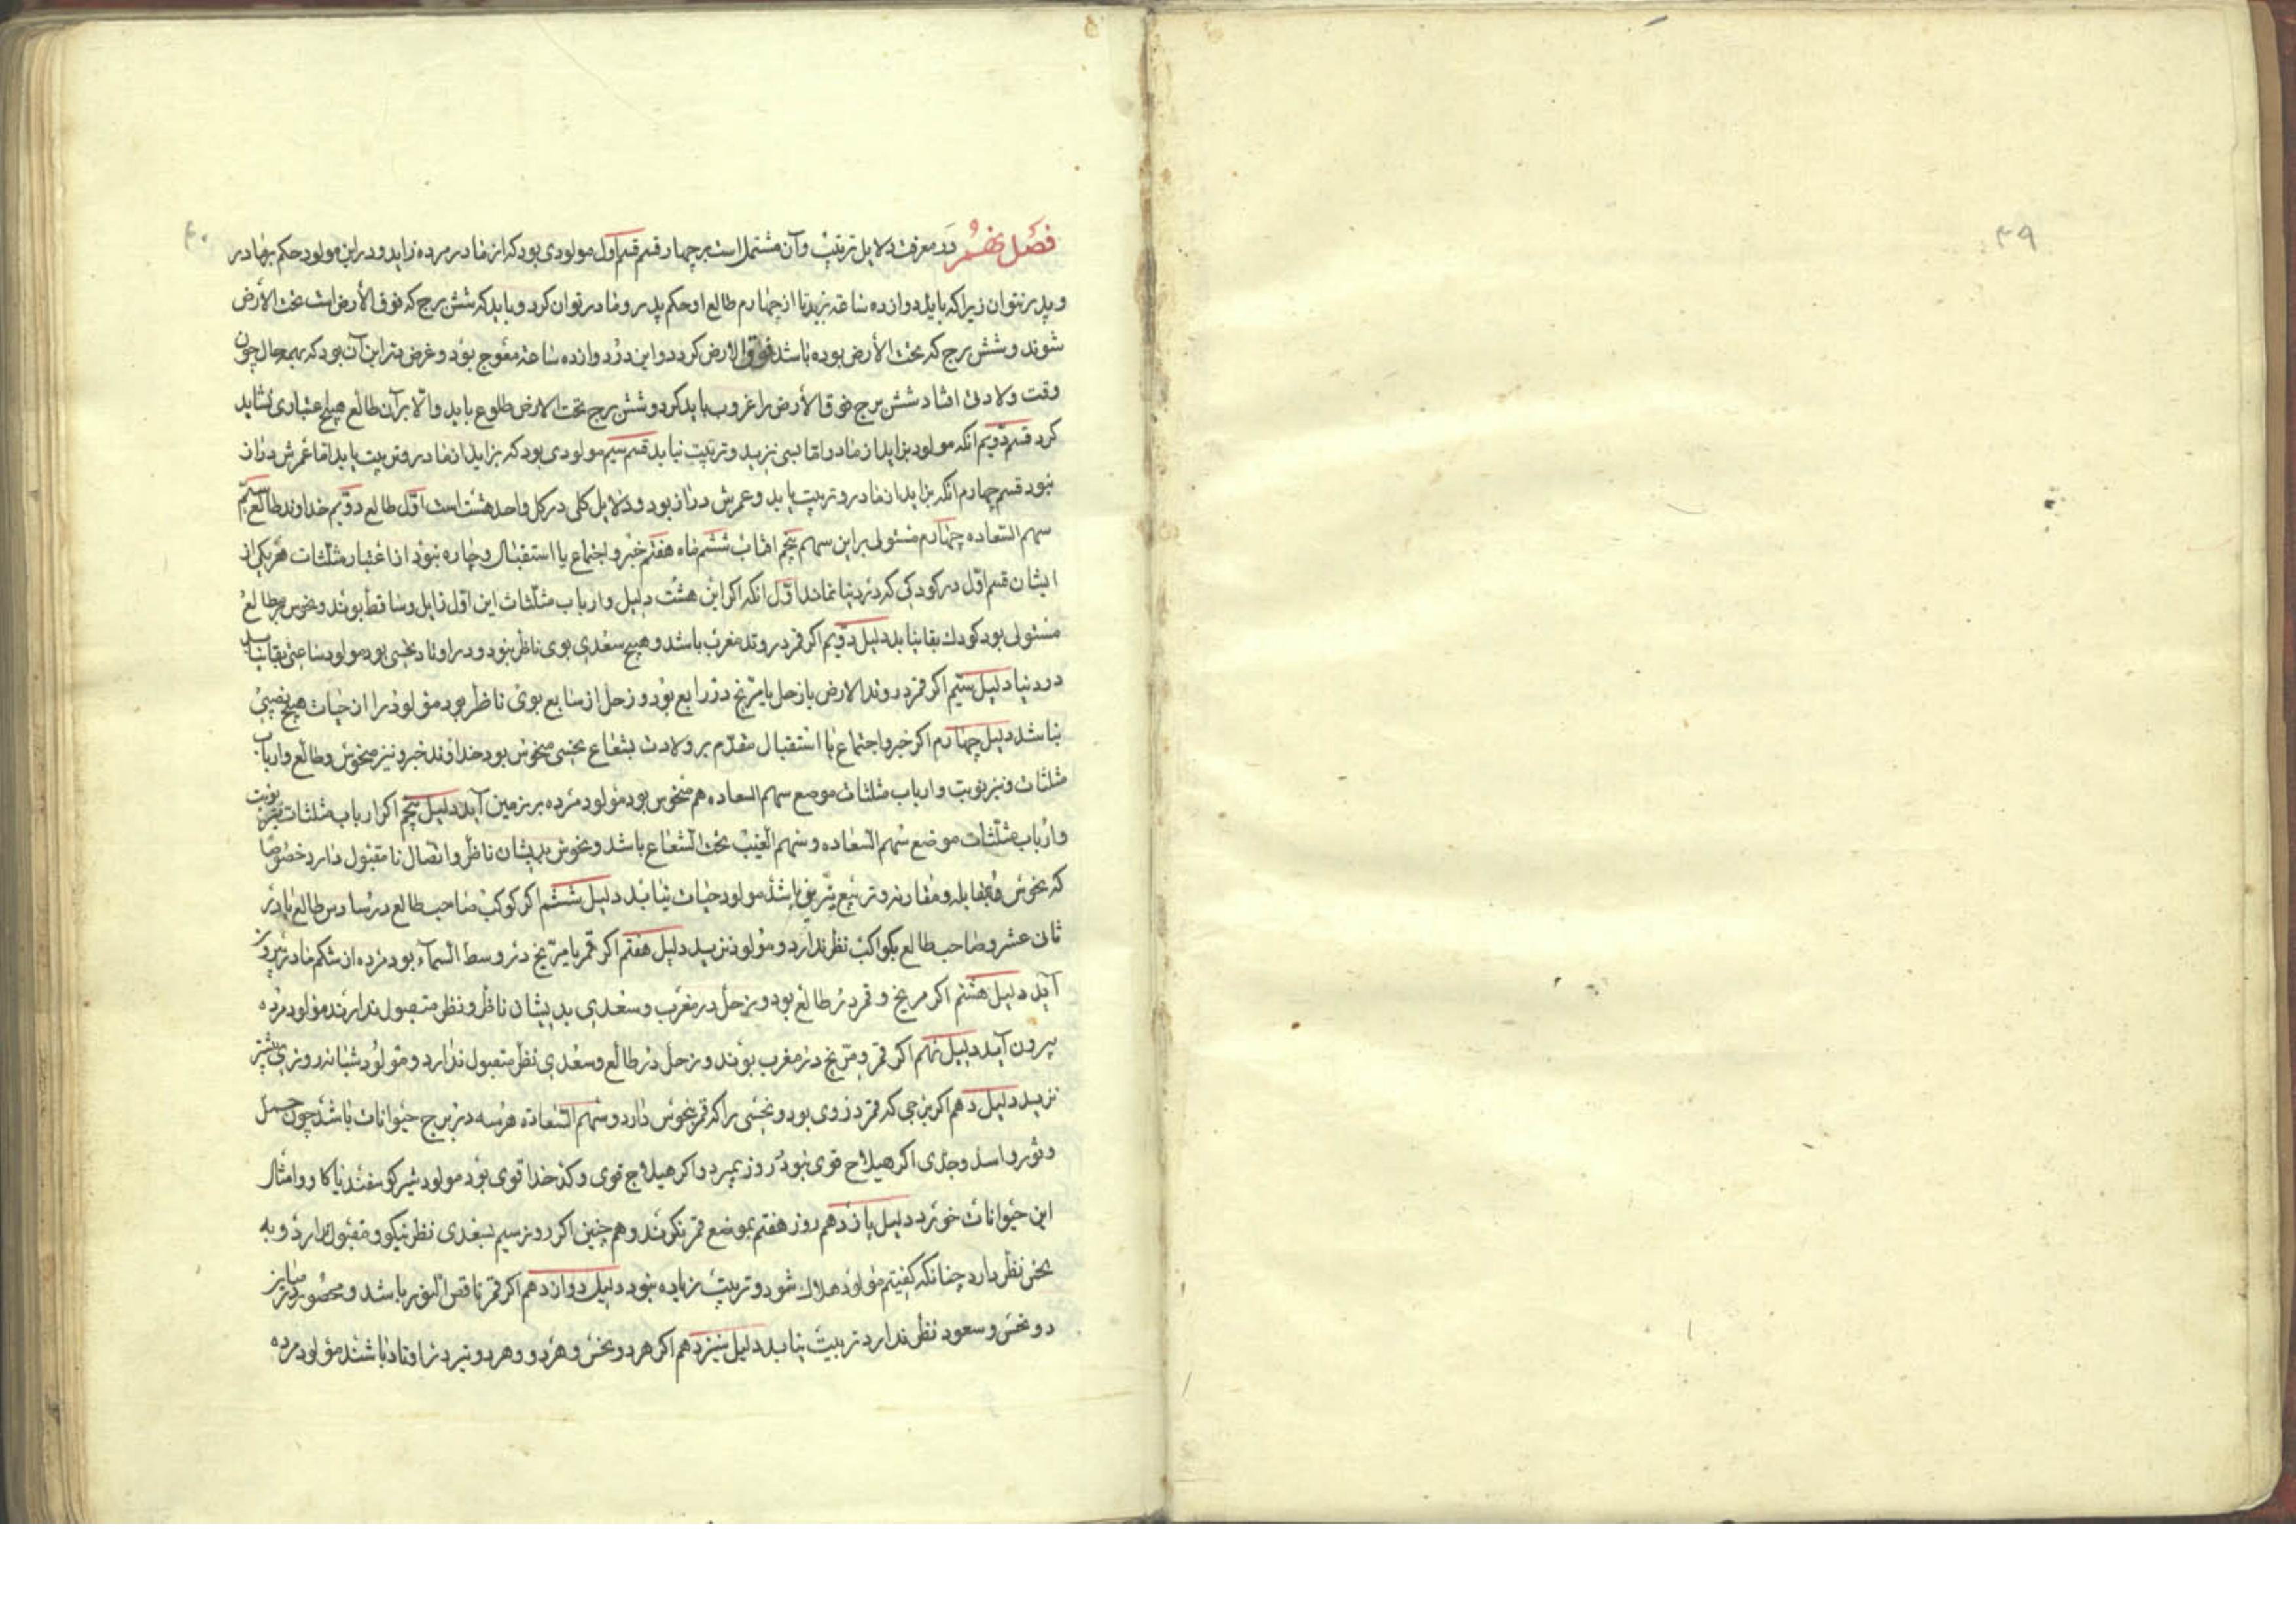 ۳۹
۴۰
فصل نهم در معرفت دلایل تربیت و آن مشتمل است بر چهار قسم قسم اول مولودی بود که از مادر مرده زاید و در این مولود حکم بمادر
و پدر نتوان زیرا که باید دوازده ساعت بزید تا از چهارم طالع او حکم پدر و مادر توان کرد و باید که شش برج که فوق الأرض است تحت الأرض
شوند و شش برج که تحت الأرض بوده باشد فوق الارض کردد و این در دوازده ساعت معوج بود و غرض در این آن بود که بهمه حال چون
وقت ولادت افتاد شش برج فوق الأرض را غروب باید کرد و شش برج تحت الارض طلوع باید والّا بر آن طالع هیچ اعتباری نشاید
کرد قسم دویم انکه مولود بزاید از مادر اما بسی نزید و تربیت نیابد قسم سیم مولودی بود که بزاید از مادر و تربیت یابد اما عمرش دراز
نبود قسم چهارم انکه بزاید از مادر و تربیت یابد و عمرش دراز بود و دلایل کلی در کل واحد هشت است اوّل طالع دوّیم خداوند طالع سیم
سهم السعاده چهارم مستولی بر این سهم پنجم افتاب ششم ماه هفتم خبر و اجتماع یا استقبال و چاره نبود از اعتبار مثلثات هر یکی از
ایشان قسم اوّل در کودکی که در دنیا نماند اوّل انکه اکر این هشت دلیل و ارباب مثلثات این اوّل زایل و ساقط بوند و نحوس بر طالع
مستولی بود کودك بقا نیابد دلیل دویم اکر قمر در وتد مغرب باشد و هیچ سعدی بوی ناظر نبود و در اوتاد نحسی بود مولود ساعتی بقا نیابد
در دنیا دلیل سیّم اکر قمر در وتد الارض با زحل یا مرّیخ در رابع بود و زحل از سابع بوی ناظر بود مولود را از حیات هیچ نصیبی
نباشد دلیل چهارم اکر خبر و اجتماع یا استقبال مقدّم بر ولادت بشعاع نحسی منحوس بود خداوند خبر و نیز منحوس و طالع و ارباب
مثلثات و نیز نوبت و ارباب مثلثات موضع سهم السعاده هم منحوس بود مولود مرده بر زمین آید دلیل پنجم اکر ارباب مثلثات نیّر نوبت
و ارباب مثلثات موضع سهم السعاده و سهم الغیب تحت الشعاع باشد و نحوس بدیشان ناظر و اتصال نا مقبول دارد خصوصا
که نحوس مقابله و مقارنه و تربیع نیّرین باشد مولود حیات نیابد دلیل ششم اکر کوکب صاحب طالع در سادس طالع یا در
ثانی عشر و صاحب طالع بکواکب نظر ندارد و مولود نزید دلیل هفتم اکر قمر با مرّیخ در وسط السمآء بود مرده از شکم مادر بیرون
آید دلیل هشتم اکر مریخ و قمر در طالع بود و زحل در مغرب و سعدی بدیشان ناظر و نظر مقبول ندارند مولود مرده
بیرون آید دلیل نهم اکر قمر و مرّیخ در مغرب بوند و زحل در طالع و سعدی نظر مقبول ندارد و مولود شبانه روزی بیشتر
نزید دلیل دهم اکر برجی که قمر در وی بود و نحسی را که قمر نحوس دارد و سهم السعاده هر سه در برج حیوانات باشد چون حمل
و ثور و اسد و جدی اکر هیلاج قوی نبود روز بمیرد و اکر هیلاج قوی و کدخدا قوی بود مولود شیر کوسفند یا کاو و امثال
این حیوانات خورد دلیل یازدهم روز هفتم بموضع قمر نکرند و هم چنین اکر روز سیم بسعدی نظر نیکو و مقبول ندارد و به
نحس نظر دارد چنانکه کفیتم مولود هلاك شود و تربیت زیاده نبود دلیل دوازدهم اکر قمر ناقص النور باشد و محصور میان
دو نحس و سعود نظر ندارد تربیت نیابد دلیل سیزدهم اکر هر دو نحس و هر دو و هر دو نیر در اوتاد باشند مولود مرده